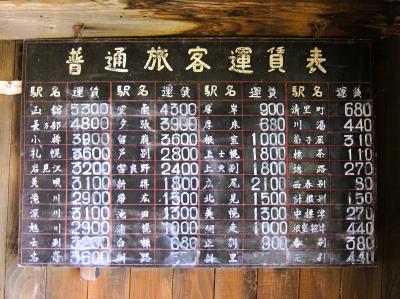 普通旅客運賃表
駅名 運賃 駅名 運賃 駅名 運賃 駅名 運賃
函館 5300 室蘭 4300 厚岸 900 清里町 680
長万部 4800 夕張 3900 厚床 680 川湯 440
小樽 3900 留萌 3600 根室 1000 弟子屈 310
札幌 3600 芦別 2800 上士幌 1800 標茶 110
岩見沢 3200 富良野 2400 1800 270
美唄 3100 新得 1800 広尾 2100 西春別 80
滝川 2900 帯広 1500 北見 1500 計根別 150
深川 3100 池田 1300 美幌 1300 中標津 270
旭川 2900 浦幌 1000 網走 1000 根室標津 440
士別 3200 白糠 680 900 春別 380
名寄 3600 釧路 斜里 440